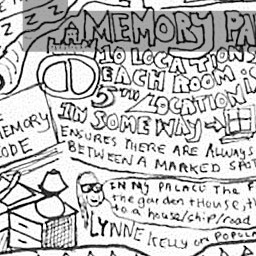 A MEMORY PA
10 LOCATIONS
EACH ROOM i
5TH LOCATION i
IN SOME WAY →
ENSURES THERE ARE ALWAYS
BETWEEN A MARKED SPOT
MEMORY
CODE
IN MY PALACE THE F
the garden + House, th
to a house/ship/road
LYNNE KELLY on POPULA